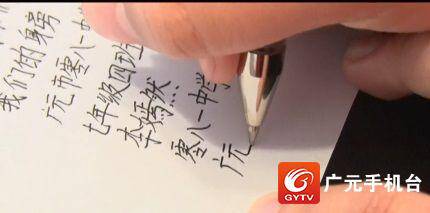 我们的身
广元市零八一
七年级四班
李嫣然
零八一中学
广元
GYTV
广元手机台